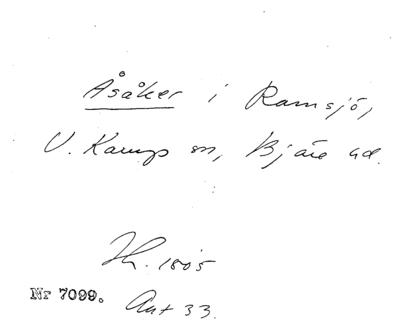 Åsåker i Ramsjö,
V. Karup sn, Bjäre hd.
Lh. 1805
Nr 7099. Akt 33.